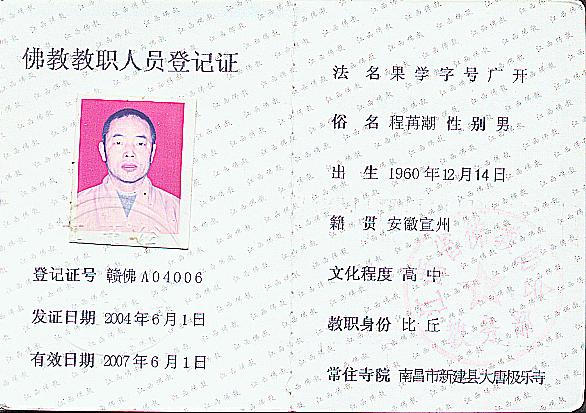 佛教教职人员登记证
登记证号 赣佛A04006
发证日期 2004年6月1日
有效日期 2007年6月1日
法 名 果 学 字 号 广 开
俗 名 程苒潮 性 别 男
出 生 1960年12月14日
籍 贯 安徽宣州
文化程度 高 中
教职身份 比 丘
常住寺院 南昌市新建县大唐极乐寺
江西佛教